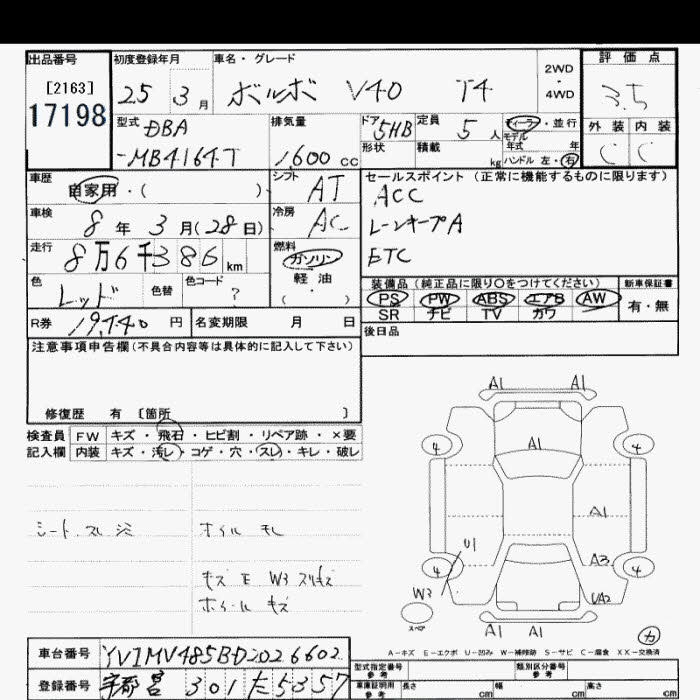 出品番号 初度登録年月 車名・グレード 2WD 評価点
[2163] 25 3月 ボルボ V40 T4 4WD 3.5
17198 型式 DBA 排気量 ドア 5HB 定員 5人 ディーラー・並行 外装 内装
-MB4164T 1,600cc 形状 積載 kg モデル年式 年 C C
ハンドル 左・右
車歴 自家用・( ) シフト AT セールスポイント (正常に機能するものに限ります)
車検 8年 3月(28日) 冷房 AC ACC
走行 8万6千386km 燃料 ガソリン レーンキープA
軽油 ETC
( ・ )
色 レッド 色替 色コード ? 装備品 (純正品に限り〇をつけてください) 新車保証書
PS PW ABS エアB AW 有・無
R券 19,740円 名変期限 月 日 SR ナビ TV カワ
後日品
注意事項申告欄(不具合内容等は具体的に記入して下さい)
修復歴 有 〔箇所 〕
検査員 FW キズ・飛石・ヒビ割・リペア跡・×要
記入欄 内装 キズ・汚レ・コゲ・穴・スレ・キレ・破レ
シート スレ
ホイル
キズ E W3 スリキズ
ホイール キズ
A1 A1
A1
4 4
A1
U1
A3
4 4
W3 UA2
スペア
A1 A1 カ
A-キズ E-エクボ U-凹み W-補修跡 S-サビ C-腐食 XX-交換済
車台番号 YV1MV485BD2026602 型式指定番号 参考 類別区分番号 参考
登録番号 宇都宮 301 た 5357 車庫証明用 参考 長さ cm 幅 cm 高さ cm